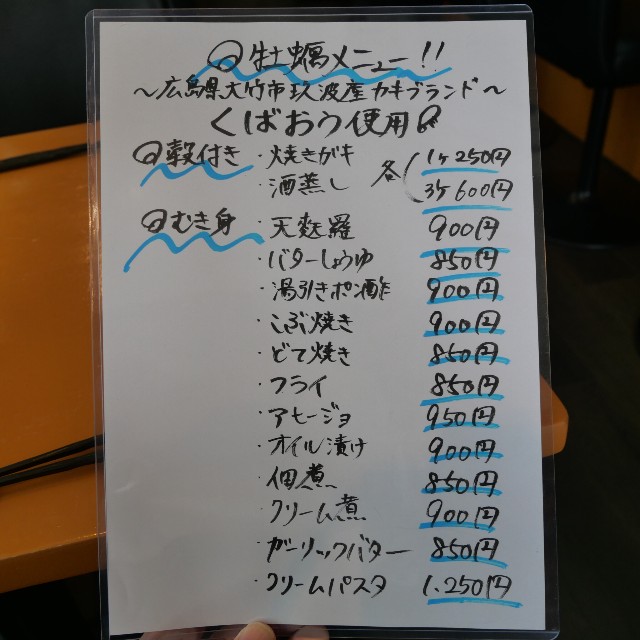 牡蠣メニュー!!
～広島県大竹市玖波産カキブランド～
くばおう使用
殻付き ・焼きガキ 各 1ヶ 250円
・酒蒸し 3ヶ 600円
むき身 ・天麩羅 900円
・バターしょうゆ 850円
・湯引きポン酢 900円
・こぶ焼き 900円
・どて焼き 850円
・フライ 850円
・アヒージョ 950円
・オイル漬け 900円
・佃煮 850円
・クリーム煮 900円
・ガーリックバター 850円
・クリームパスタ 1.250円